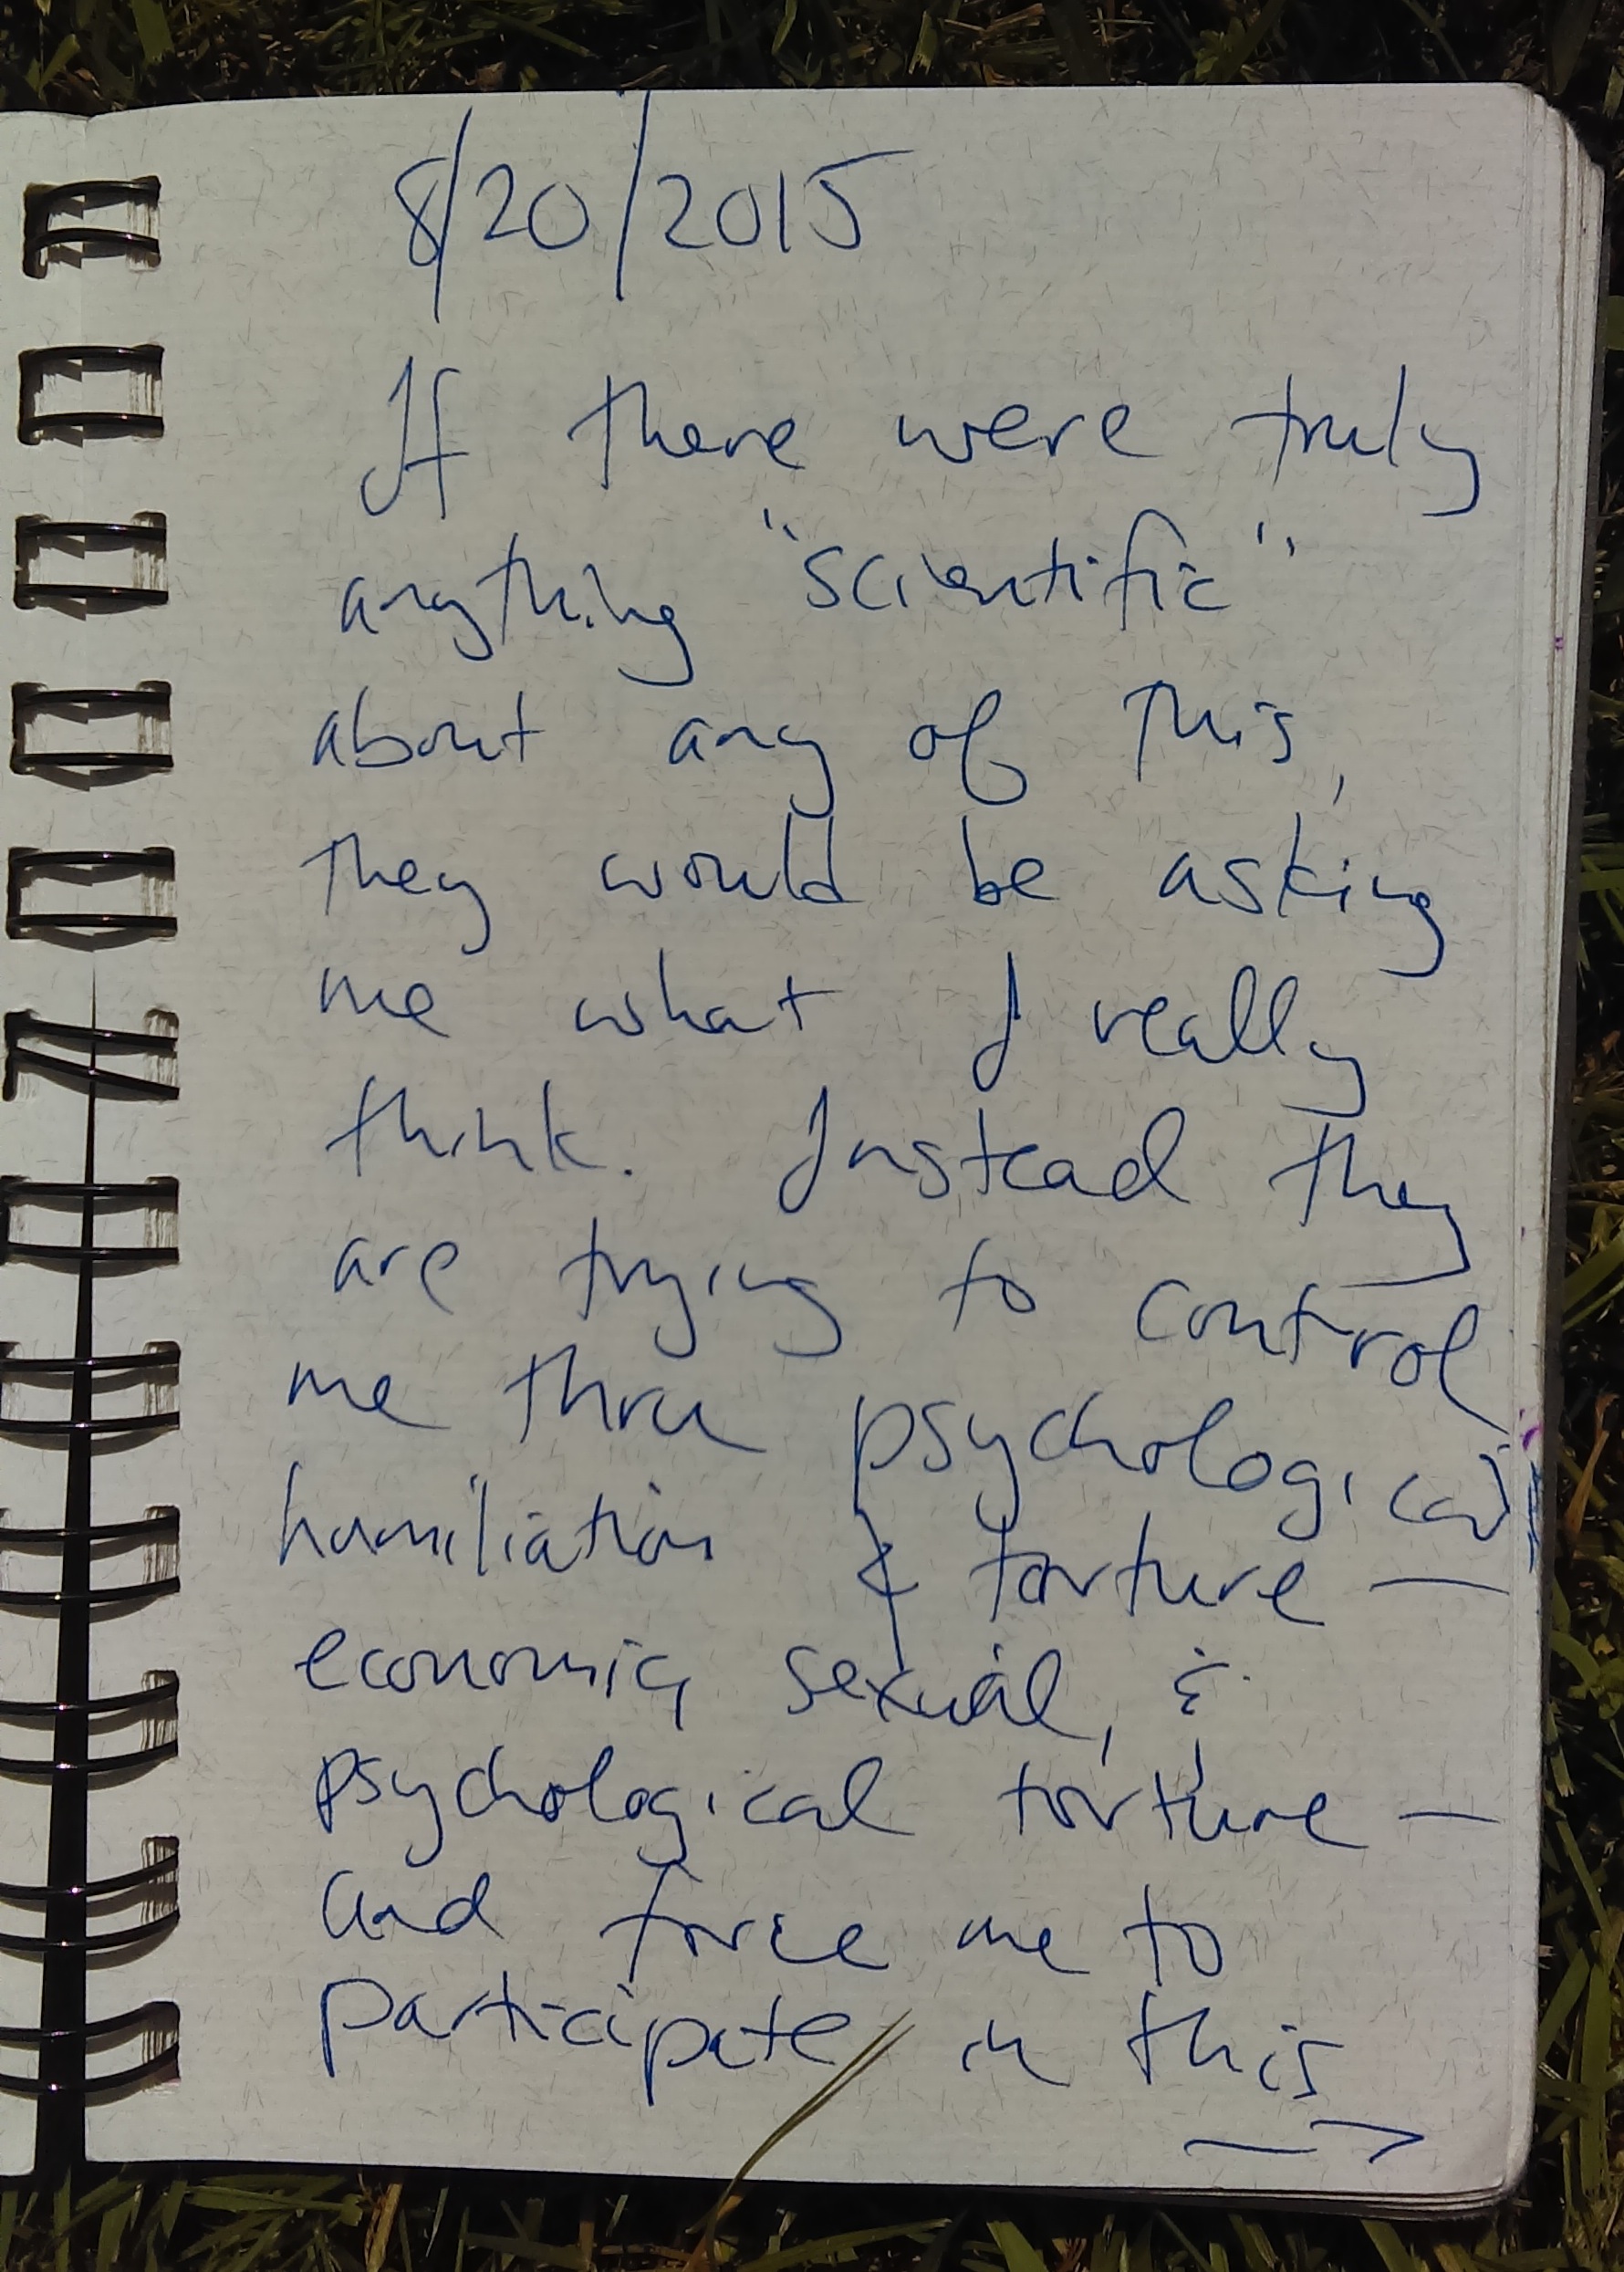 8/20/2015
If there were truly
anything "scientific"
about any of this,
they would be asking
me what I really
think. Instead they
are trying to control
me thru psychological
humiliation & torture —
economic, sexual, &
psychological torture —
and force me to
participate in this
→